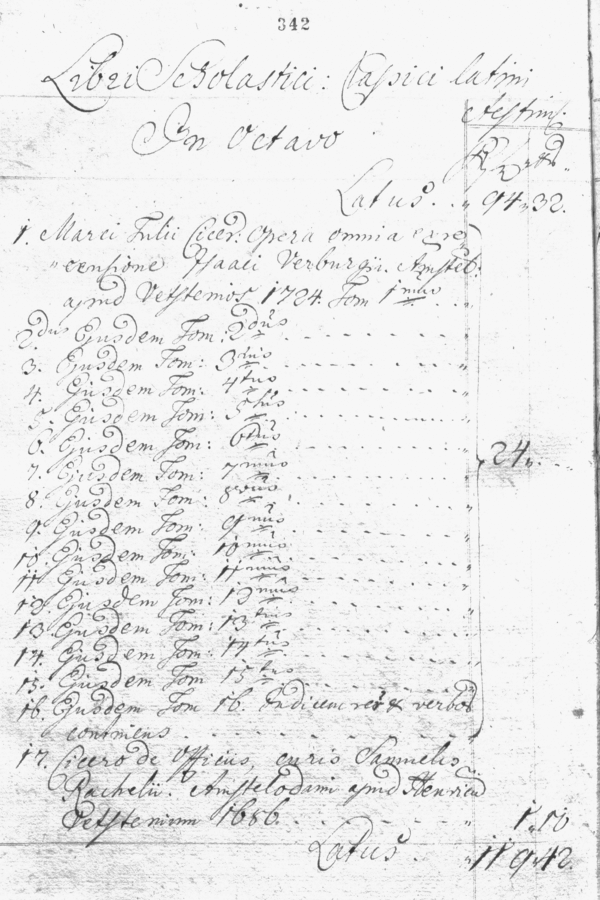 342
Libri Scholastici: Classici latini
In Octavo
Æstim.
Latus. . 94 " 32.
1. Marci Tulii Cicer: Opera omnia ex re,
"censione Isaaci Verburgii. Amsteb:
apud Vetstenios 1724. Tom 1mus
2dus Ejusdem Tom: 2dus
3. Ejusdem Tom: 3tius
4. Ejusdem Tom: 4tus
5. Ejusdem Tom: 5tus
6. Ejusdem Tom: 6tus
7. Ejusdem Tom: 7mus
24 "
8. Ejusdem Tom: 8vus
9. Ejusdem Tom: 9nus
10. Ejusdem Tom: 10mus
11. Ejusdem Tom: 11mus
12. Ejusdem Tom: 12mus
13. Ejusdem Tom: 13tius
14. Ejusdem Tom: 14tus
15. Ejusdem Tom: 15tus
16. Ejusdem Tom 16. Indicem rer & verbor
continens
17. Cicero de Officiis, curis Samuelis
Rachelii. Amstelodami apud Henricu
Vetstenium 1686. 1 " 10
Latus. " 119 " 42.